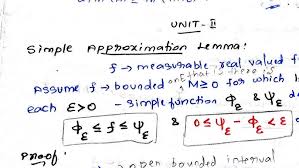 UNIT-II
Simple Approximation Lemma:
f → measurable real valued f
Assume f → bounded one that is there is M≥0 for which
each ε>0 - simple function ϕ_ε & ψ_ε
ϕ_ε ≤ f ≤ ψ_ε & 0 ≤ ψ_ε - ϕ_ε < ε
Proof:
open bounded interval